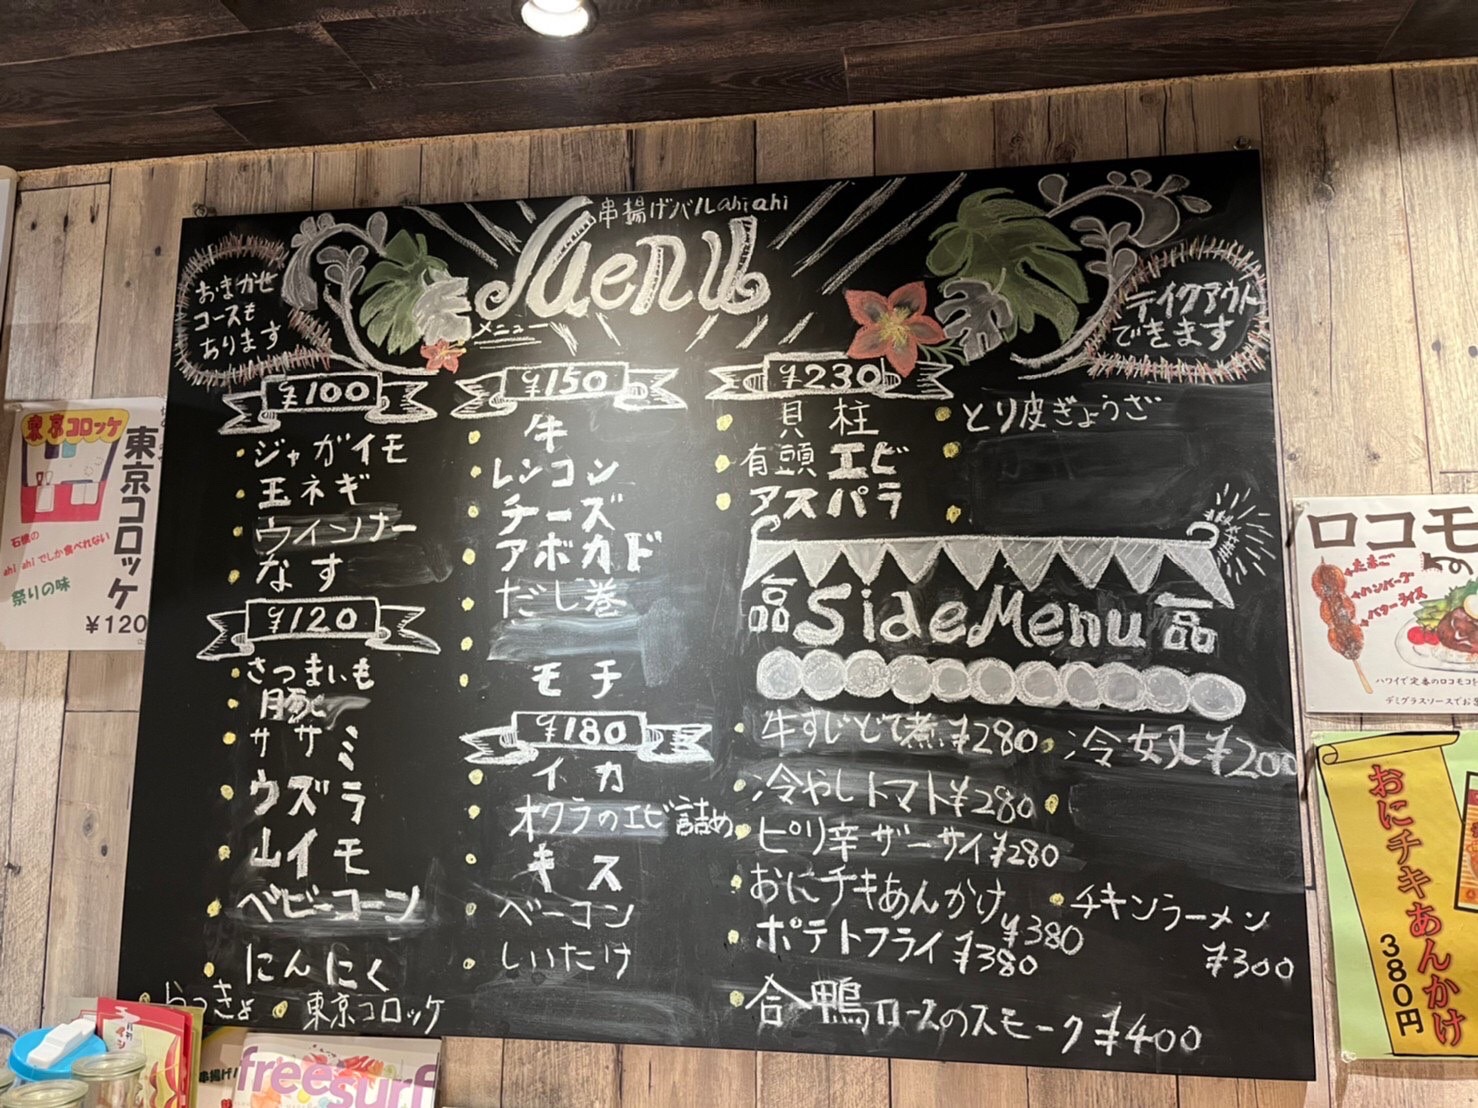 串揚げバルahiahi
Menu
メニュー
おまかせ
コースも
あります
テイクアウト
できます
¥100
ジャガイモ
玉ネギ
ウインナー
なす
¥120
さつまいも
豚
ササミ
ウズラ
山イモ
ベビーコーン
にんにく
らっきょ
東京コロッケ
¥150
牛
レンコン
チーズ
アボカド
だし巻
モチ
¥180
イカ
オクラのエビ詰め
キス
ベーコン
しいたけ
¥230
貝柱
有頭エビ
アスパラ
とり皮ぎょうざ
Side Menu
牛すじどて煮¥280
冷奴¥200
冷やしトマト¥280
ピリ辛ザーサイ¥280
おにチキあんかけ
¥380
チキンラーメン
¥300
ポテトフライ¥380
合鴨ロースのスモーク¥400
東京コロッケ
東京コロッケ
石橋の
ahi ahiでしか食べれない
祭りの味
¥120
ロコモ
たまご
ハンバーグ
バターライス
ハワイで定番のロコモコ
デミグラスソースでお
おにチキあんかけ
380円
串揚げバ
freesurf